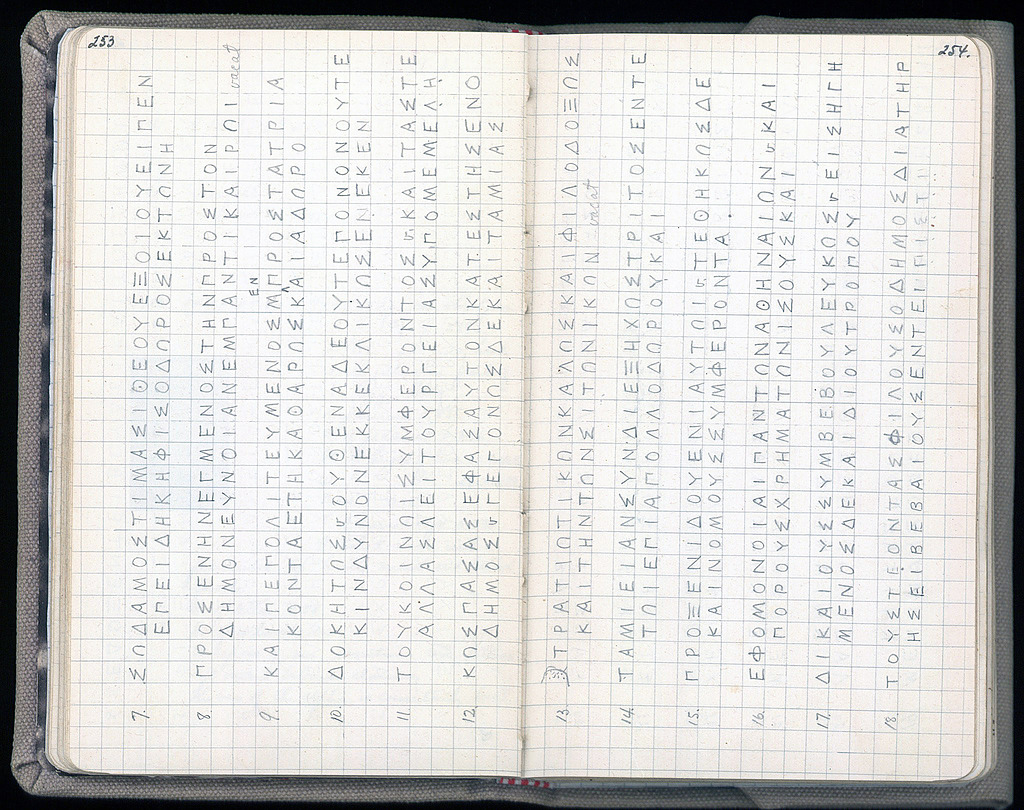 253
7. ΣΩΔΑΜΟΣΤΙΜΑΣΙΘΕΟΥΕΞΟΙΟΥΕΙΠΕΝ
ΕΠΕΙΔΗΚΗΦΙΣΟΔΩΡΟΣΕΚΤΩΝΗ
8. ΠΡΟΣΕΝΗΝΕΓΜΕΝΟΣΤΗΝΠΡΟΣΤΟΝ
ΔΗΜΟΝΕΥΝΟΙΑΝΕΜΠΑΝΤΙΚΑΙΡΩΙ vacat
ΕΝ
9. ΚΑΙΠΕΠΟΛΙΤΕΥΜΕΝΟΣΜΠΡΟΣΤΑΤΡΙΑ
ΚΟΝΤΑΕΤΗΚΑΘΑΡΩΣΚΑΙΑΔΩΡΟ
10. ΔΟΚΗΤΩΣ v. ΟΥΘΕΝΑΔΕΟΥΤΕΠΟΝΟΝΟΥΤΕ
ΚΙΝΔΥΝΟΝΕΚΚΕΚΛΙΚΩΣΕΝΕΚΕΝ
11. ΤΟΥΚΟΙΝΩΙΣΥΜΦΕΡΟΝΤΟΣ v. ΚΑΙΤΑΣΤΕ
ΑΛΛΑΣΛΕΙΤΟΥΡΓΕΙΑΣΥΠΟΜΕΜΕΛΗ
12. ΚΩΣΠΑΣΑΣΕΦΑΣΑΥΤΟΝΚΑΤΕΣΤΗΣΕΝΟ
ΔΗΜΟΣ v. ΓΕΓΟΝΩΣΔΕΚΑΙΤΑΜΙΑΣ
254.
13. ΣΤΡΑΤΙΩΤΙΚΩΝΚΑΛΩΣΚΑΙΦΙΛΟΔΟΞΩΣ
ΚΑΙΤΗΝΤΩΝΣΙΤΩΝΙΚΩΝ vacat
14. ΤΑΜΙΕΙΑΝΣΥΝΔΙΕΞΗΧΩΣΤΡΙΤΟΣΕΝΤΕ
ΤΩΙΕΠΙΑΠΟΛΛΟΔΩΡΟΥΚΑΙ
15. ΠΡΟΞΕΝΙΔΟΥΕΝΙΑΥΤΩΙ v. ΤΕΘΗΚΩΣΔΕ
ΚΑΙΝΟΜΟΥΣΣΥΜΦΕΡΟΝΤΑ.
16. ΕΦΟΜΟΝΟΙΑΙΠΑΝΤΩΝΑΘΗΝΑΙΩΝ v. ΚΑΙ
ΠΟΡΟΥΣΧΡΗΜΑΤΩΝΙΣΟΥΣΚΑΙ
17. ΔΙΚΑΙΟΥΣΣΥΜΒΕΒΟΥΛΕΥΚΩΣ v. ΕΙΣΗΓΗ
ΜΕΝΟΣΔΕΚΑΙΔΙΟΥΤΡΟΠΟΥ
18. ΤΟΥΣΤΕΟΝΤΑΣΦΙΛΟΥΣΟΔΗΜΟΣΔΙΑΤΗΡ
ΗΣΕΙΒΕΒΑΙΟΥΣΕΝΤΕΙΠΙΣΤΙ